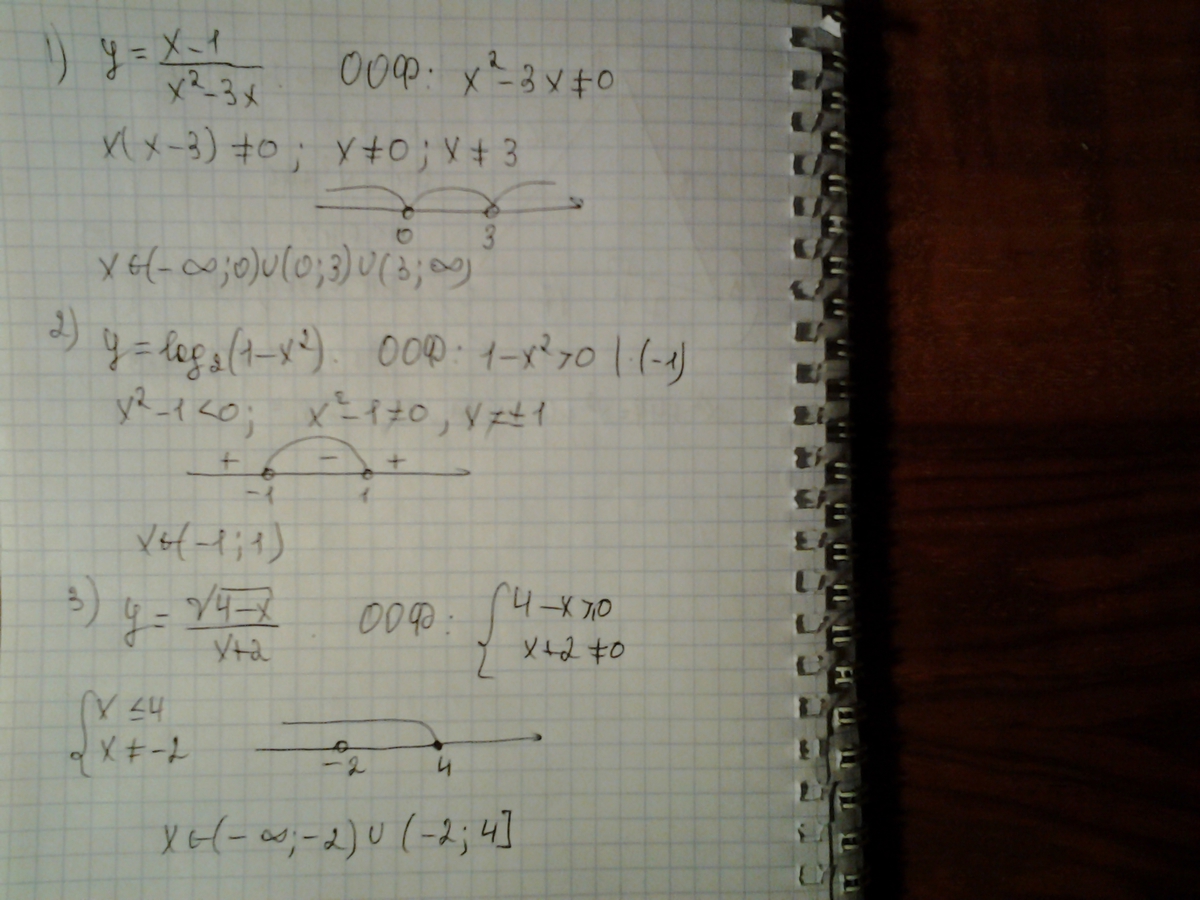 1) y = (x-1)/(x²-3x) ООФ: x²-3x≠0
x(x-3)≠0; x≠0; x≠3
0 3
x∈(-∞;0)∪(0;3)∪(3;∞)
2) y=log₂(1-x²). ООФ: 1-x²>0 |·(-1)
x²-1<0; x²-1≠0, x≠±1
+ - +
-1 1
x∈(-1;1)
3) y = √(4-x)/(x+2). ООФ: { 4-x≥0
x+2≠0
{ x≤4
x≠-2
-2 4
x∈(-∞;-2)∪(-2;4]